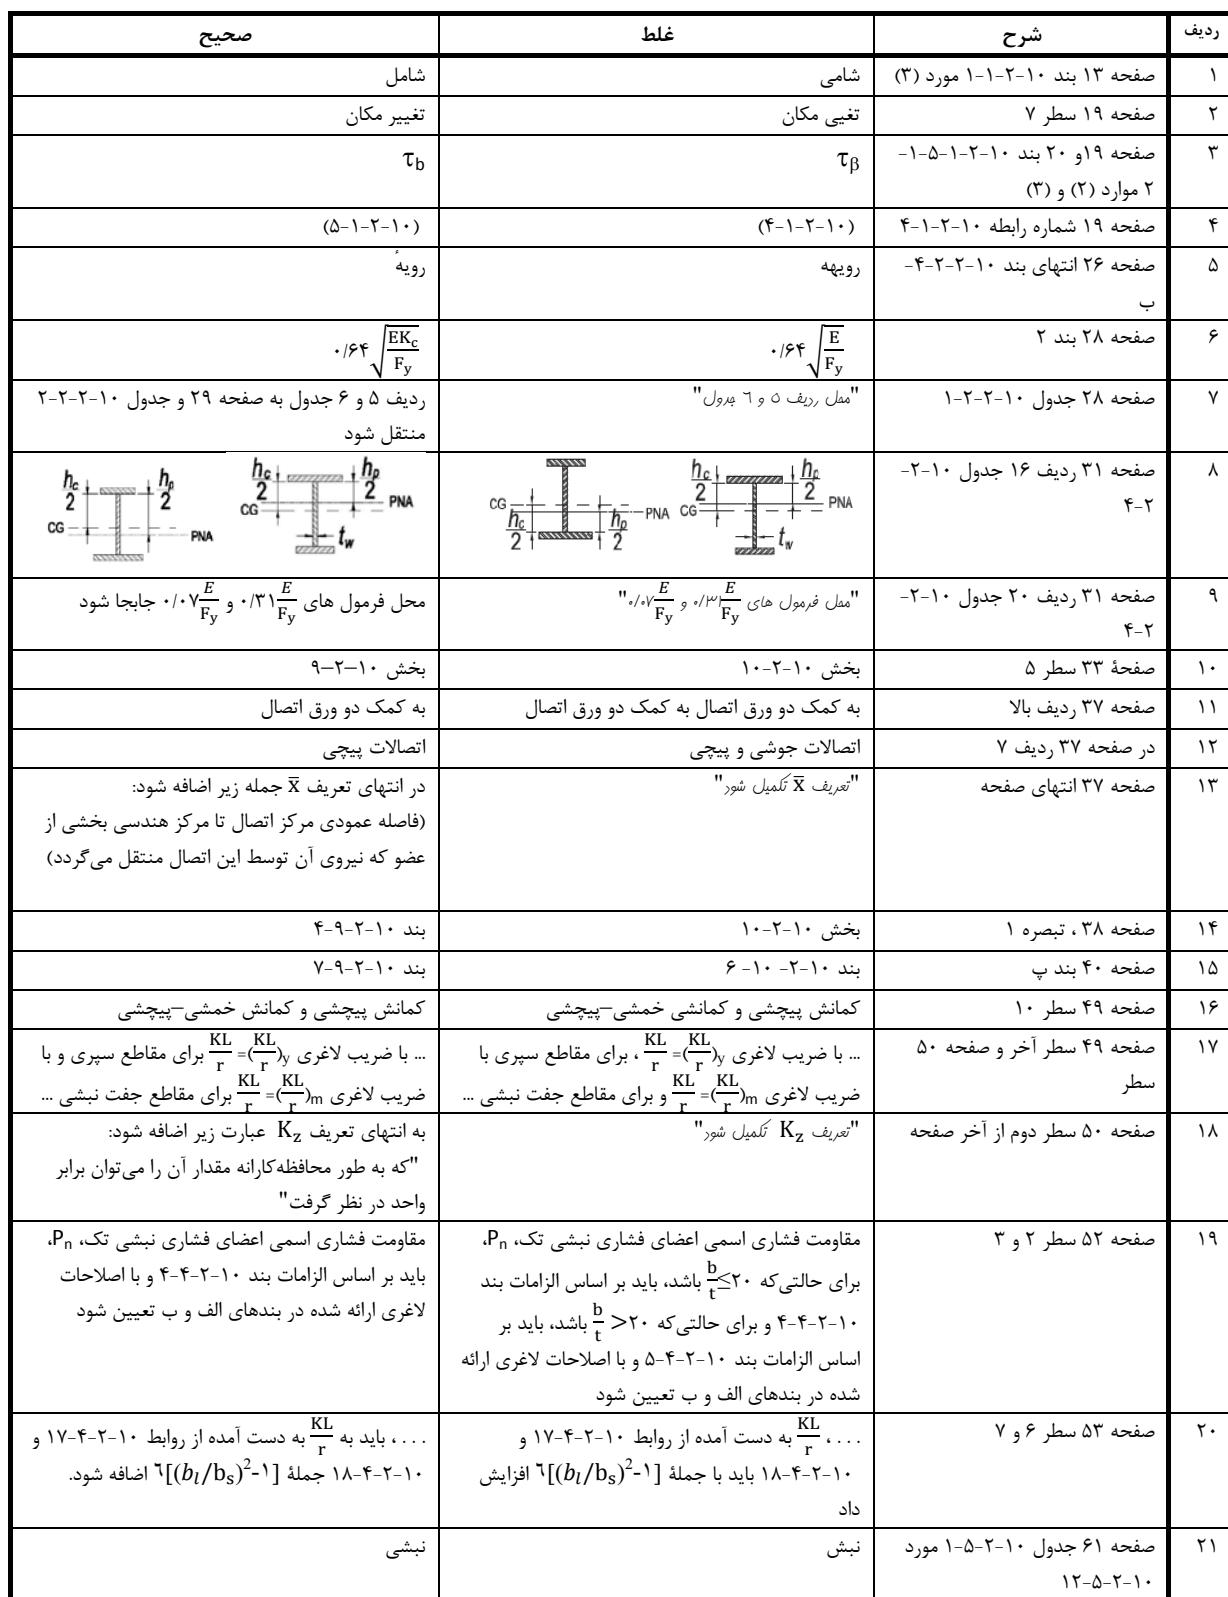 ردیف شرح غلط صحیح
۱ صفحه ۱۳ بند ۱۰-۲-۱-۱ مورد (۳) شامی شامل
۲ صفحه ۱۹ سطر ۷ تغیی مکان تغییر مکان
۳ صفحه ۱۹و ۲۰ بند ۱۰-۲-۱-۵-۱- τβ τb
۲ موارد (۲) و (۳)
۴ صفحه ۱۹ شماره رابطه ۱۰-۲-۱-۴ (۱۰-۲-۱-۴) (۱۰-۲-۱-۵)
۵ صفحه ۲۶ انتهای بند ۱۰-۲-۲-۴- رویهه رویهٔ
ب
۶ صفحه ۲۸ بند ۲ ۰/۶۴√(E/Fy) ۰/۶۴√(EKc/Fy)
۷ صفحه ۲۸ جدول ۱۰-۲-۲-۱ "محل ردیف ۵ و ۶ جدول" ردیف ۵ و ۶ جدول به صفحه ۲۹ و جدول ۱۰-۲-۲-۲
منتقل شود
۸ صفحه ۳۱ ردیف ۱۶ جدول ۱۰-۲-
۲-۴
hc/2 hp/2 CG PNA tw
hc/2 hp/2 CG PNA
hc/2 hp/2 CG PNA tw
hc/2 hp/2 CG PNA
۹ صفحه ۳۱ ردیف ۲۰ جدول ۱۰-۲- "محل فرمول های ۰/۳۱E/Fy و ۰/۰۷E/Fy" محل فرمول های ۰/۳۱E/Fy و ۰/۰۷E/Fy جابجا شود
۲-۴
۱۰ صفحۀ ۳۳ سطر ۵ بخش ۱۰-۲-۱۰ بخش ۱۰–۲–۹
۱۱ صفحه ۳۷ ردیف بالا به کمک دو ورق اتصال به کمک دو ورق اتصال به کمک دو ورق اتصال
۱۲ در صفحه ۳۷ ردیف ۷ اتصالات جوشی و پیچی اتصالات پیچی
۱۳ صفحه ۳۷ انتهای صفحه "تعریف x̅ تکمیل شور" در انتهای تعریف x̅ جمله زیر اضافه شود:
(فاصله عمودی مرکز اتصال تا مرکز هندسی بخشی از
عضو که نیروی آن توسط این اتصال منتقل می‌گردد)
۱۴ صفحه ۳۸ ، تبصره ۱ بخش ۱۰-۲-۱۰ بند ۱۰-۲-۹-۴
۱۵ صفحه ۴۰ بند پ بند ۱۰-۲- ۱۰- ۶ بند ۱۰-۲-۹-۷
۱۶ صفحه ۴۹ سطر ۱۰ کمانش پیچشی و کمانشی خمشی–پیچشی کمانش پیچشی و کمانش خمشی–پیچشی
۱۷ صفحه ۴۹ سطر آخر و صفحه ۵۰
سطر
... با ضریب لاغری KL/r =(KL/r)y ، برای مقاطع سپری با
ضریب لاغری KL/r =(KL/r)m و برای مقاطع جفت نبشی ...
... با ضریب لاغری KL/r =(KL/r)y برای مقاطع سپری و با
ضریب لاغری KL/r =(KL/r)m برای مقاطع جفت نبشی ...
۱۸ صفحه ۵۰ سطر دوم از آخر صفحه "تعریف Kz تکمیل شور" به انتهای تعریف Kz عبارت زیر اضافه شود:
"که به طور محافظه‌کارانه مقدار آن را می‌توان برابر
واحد در نظر گرفت"
۱۹ صفحه ۵۲ سطر ۲ و ۳
مقاومت فشاری اسمی اعضای فشاری نبشی تک، Pn،
برای حالتی‌که b/t≤۲۰ باشد، باید بر اساس الزامات بند
۱۰-۲-۴-۴ و برای حالتی‌که b/t >۲۰ باشد، باید بر
اساس الزامات بند ۱۰-۲-۴-۵ و با اصلاحات لاغری ارائه
شده در بندهای الف و ب تعیین شود
مقاومت فشاری اسمی اعضای فشاری نبشی تک، Pn،
باید بر اساس الزامات بند ۱۰-۲-۴-۴ و با اصلاحات
لاغری ارائه شده در بندهای الف و ب تعیین شود
۲۰ صفحه ۵۳ سطر ۶ و ۷
. . . ، KL/r به دست آمده از روابط ۱۰-۲-۴-۱۷ و
۱۰-۲-۴-۱۸ باید با جملۀ ۶[(bl/bs)²-۱] افزایش
داد
. . . ، باید به KL/r به دست آمده از روابط ۱۰-۲-۴-۱۷ و
۱۰-۲-۴-۱۸ جملۀ ۶[(bl/bs)²-۱] اضافه شود.
۲۱ صفحه ۶۱ جدول ۱۰-۲-۵-۱ مورد نبش نبشی
۱۰-۲-۵-۱۲